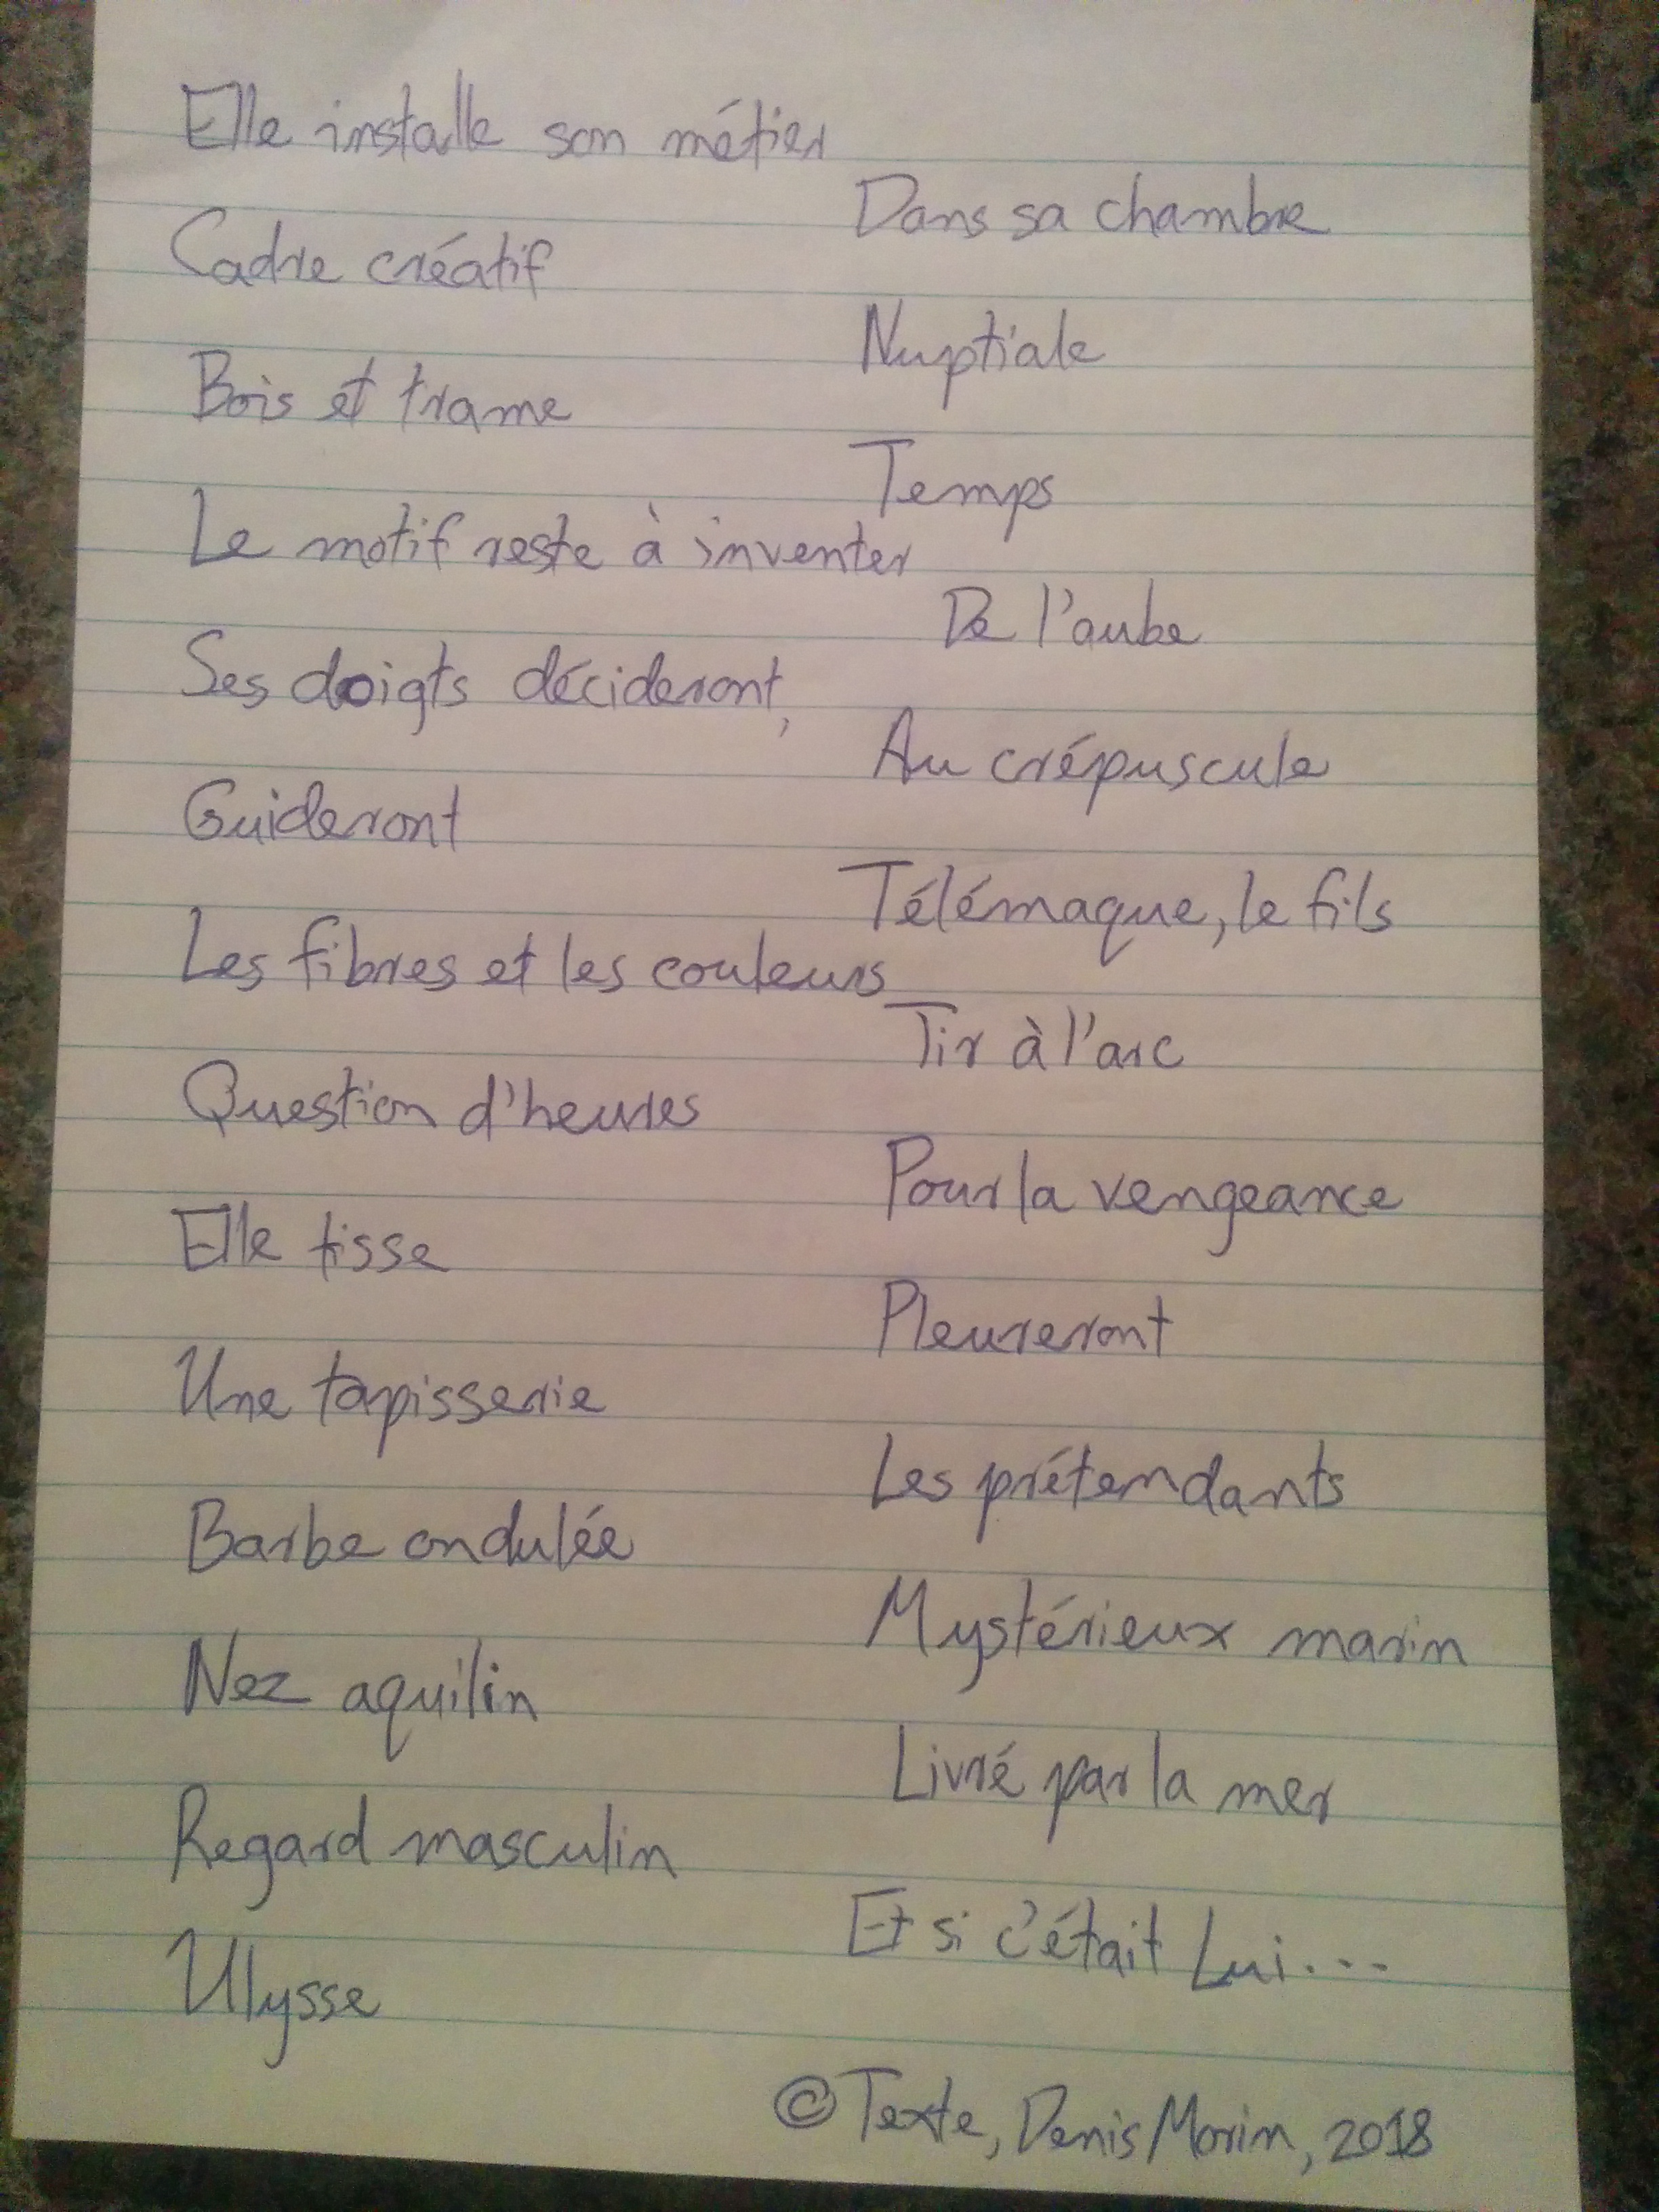 Elle installe son métier
Cadre créatif
Bois et trame
Le motif reste à inventer
Ses doigts décideront,
Guideront
Les fibres et les couleurs
Question d'heures
Elle tisse
Une tapisserie
Barbe ondulée
Nez aquilin
Regard masculin
Ulysse
Dans sa chambre
Nuptiale
Temps
De l'aube
Au crépuscule
Télémaque, le fils
Tir à l'arc
Pour la vengeance
Pleureront
Les prétendants
Mystérieux marin
Livré par la mer
Et si c'était Lui...
© Texte, Denis Morin, 2018